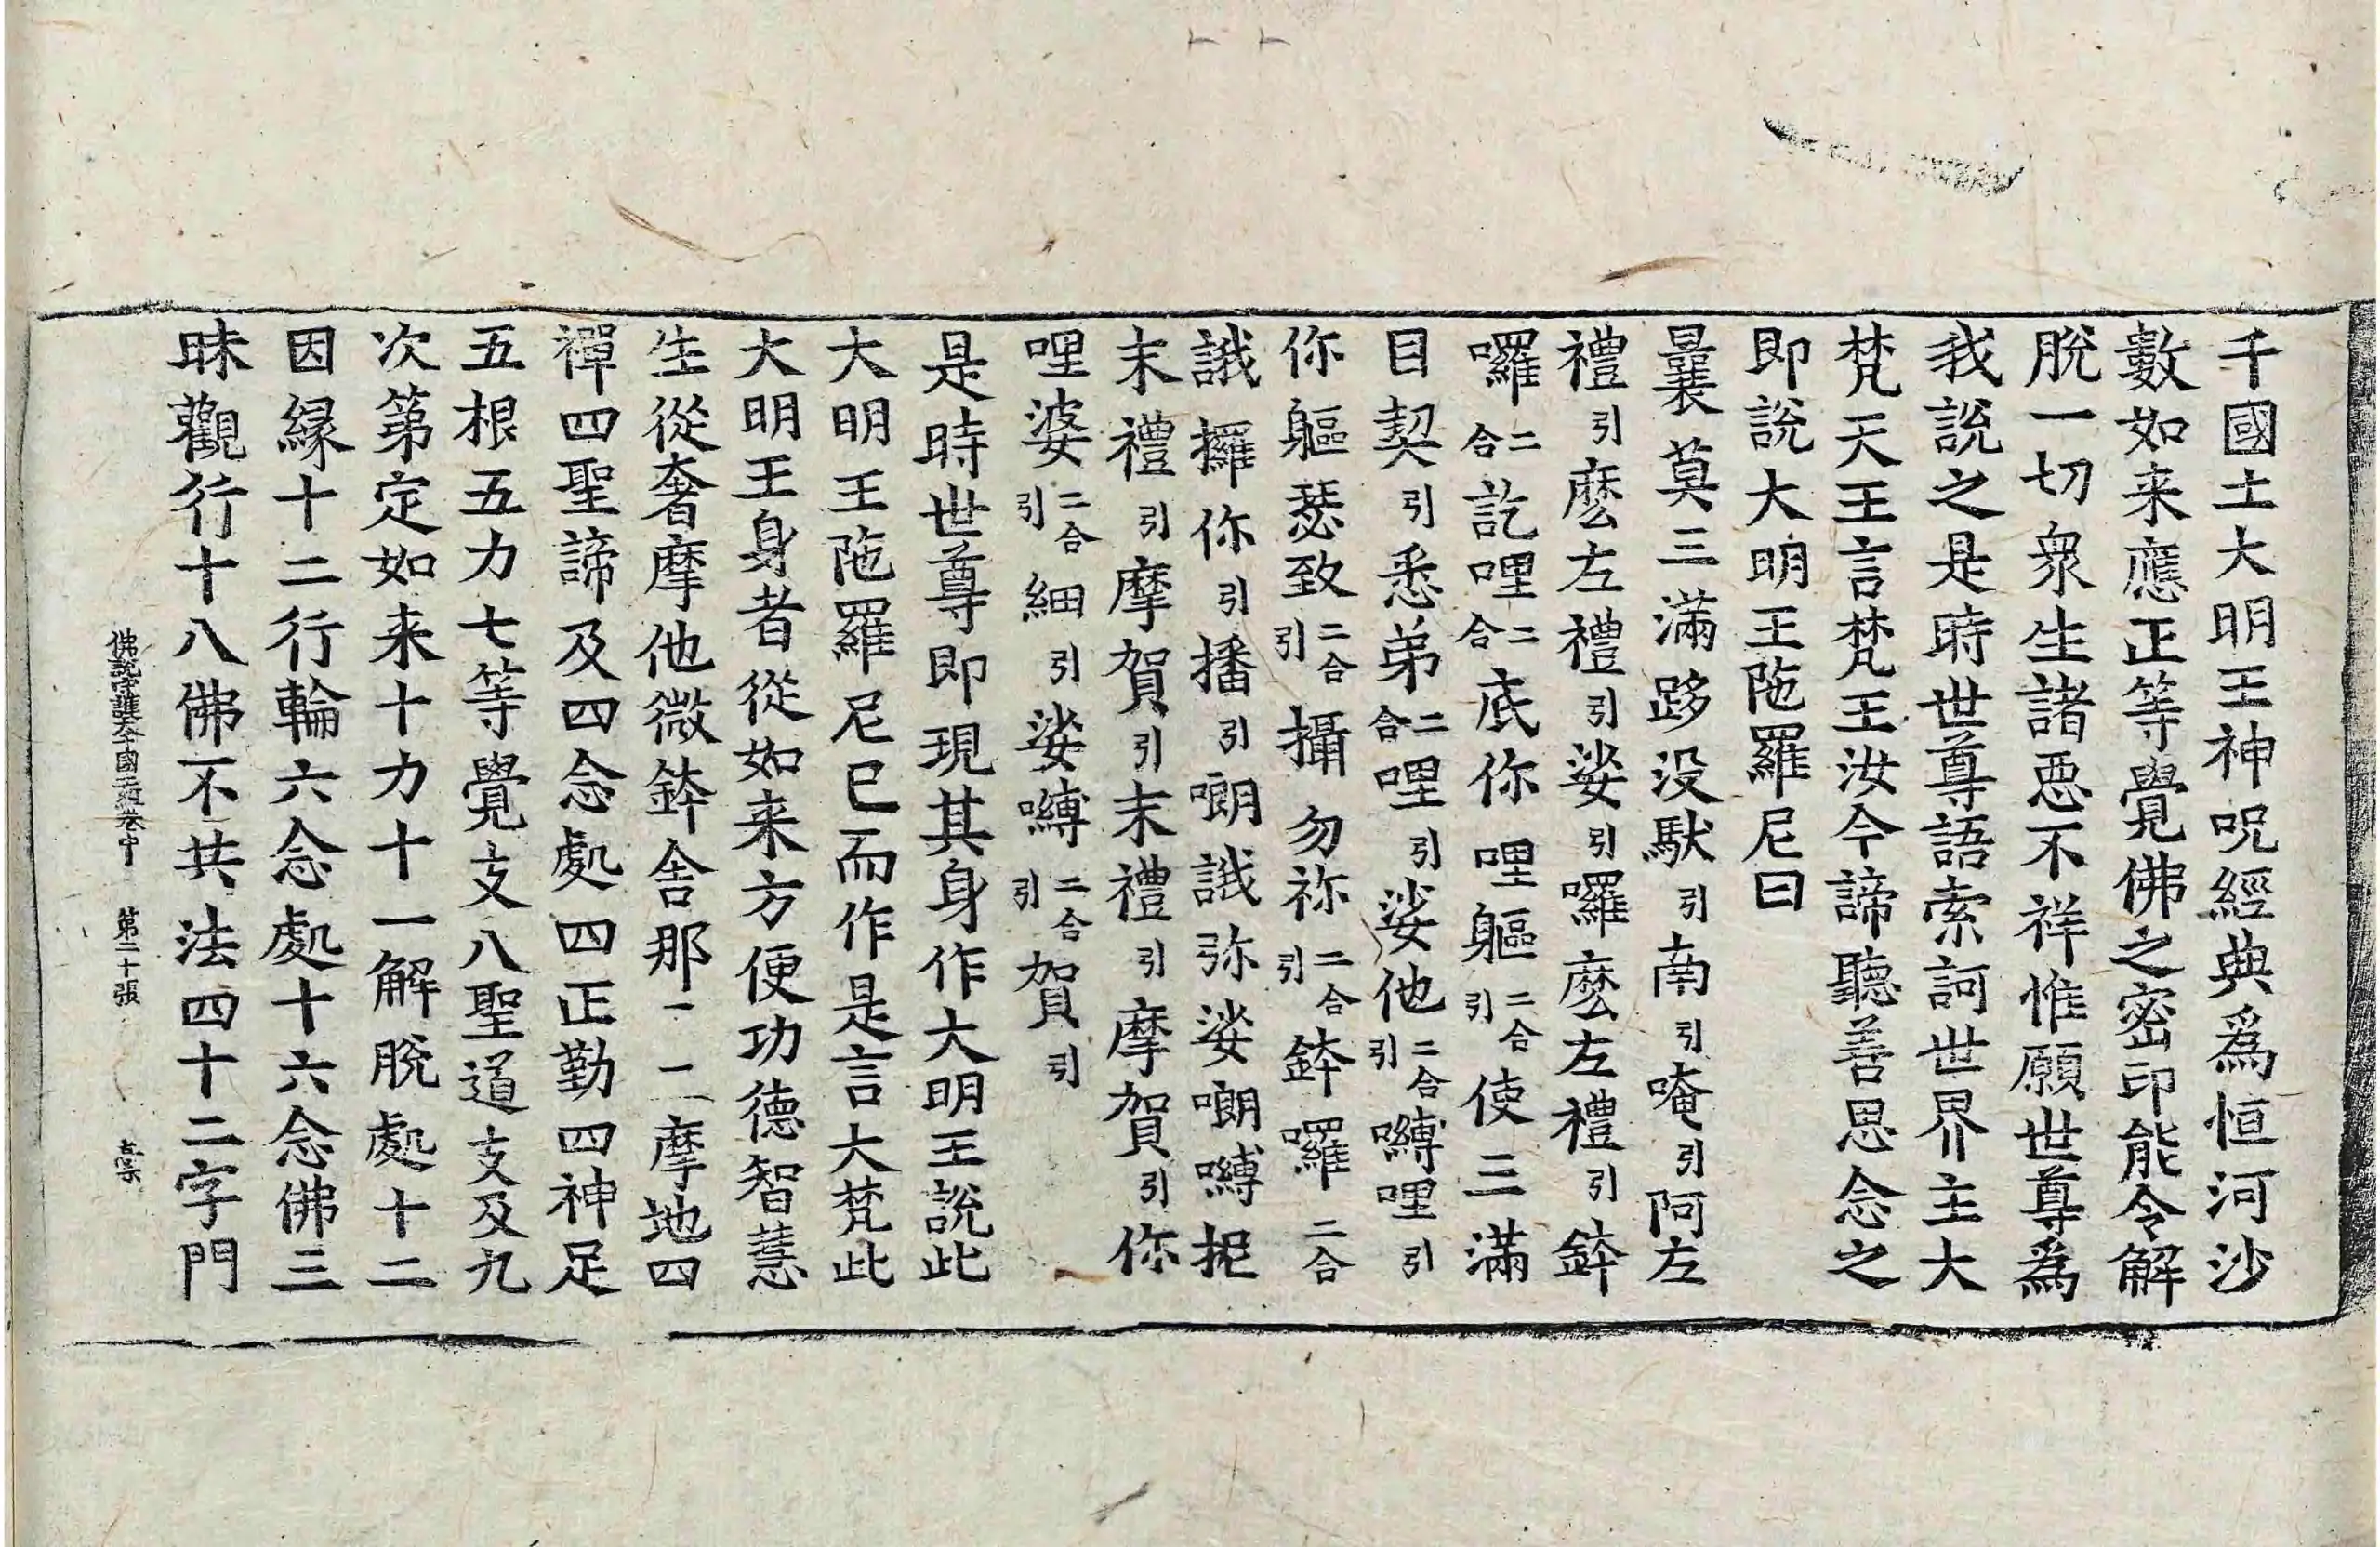 千國土大明王神呪經典爲恒河沙
數如来應正等覺佛之密印能令解
脫一切衆生諸惡不祥惟願世尊爲
我說之是時世尊語索訶世界主大
梵天王言梵王汝今諦聽善思念之
即說大明王陁羅尼曰
曩莫三滿跢没馱引南引唵引阿左
禮引麽左禮引娑引囉麽左禮引鉢
囉二合訖哩二合底你哩軀二合引使三滿
目契引悉弟二合哩引娑他二合引嚩哩引
你軀瑟致二合引攝勿祢二合引鉢囉二合
誐攞你引播引㘓誐弥娑㘓嚩抳
末禮引摩賀引末禮引摩賀引你
哩婆二合引細引娑嚩二合引賀引
是時世尊即現其身作大明王說此
大明王陁羅尼已而作是言大梵此
大明王身者從如来方便功德智慧
生從奢摩他微鉢舍那一二摩地四
禪四聖諦及四念處四正勤四神足
五根五力七等覺支八聖道支及九
次第定如来十力十一解脫處十二
因緣十二行輪六念處十六念佛三
昧觀行十八佛不共法四十二字門
佛說守護大千國土經卷中 第二十張